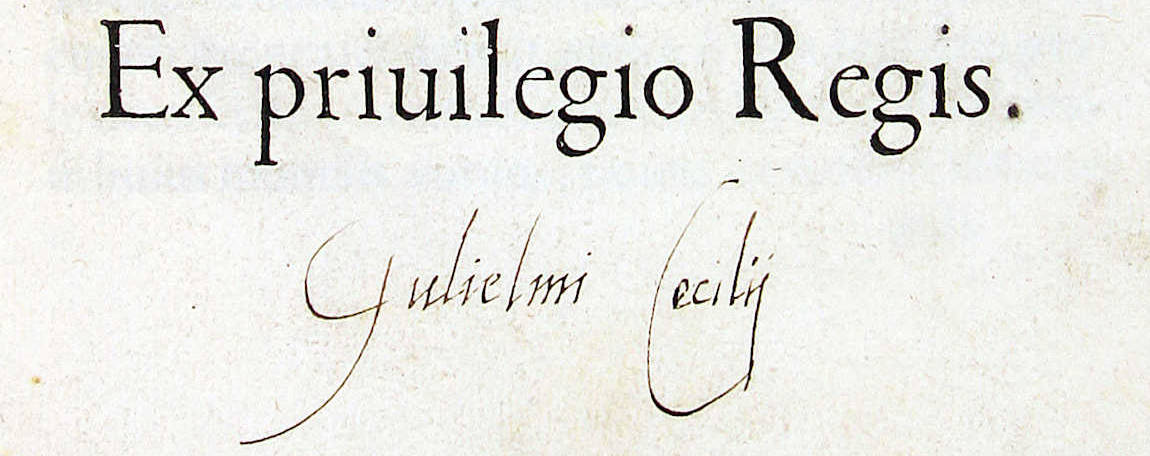 Ex priuilegio Regis.
Gulielmi Cecilij